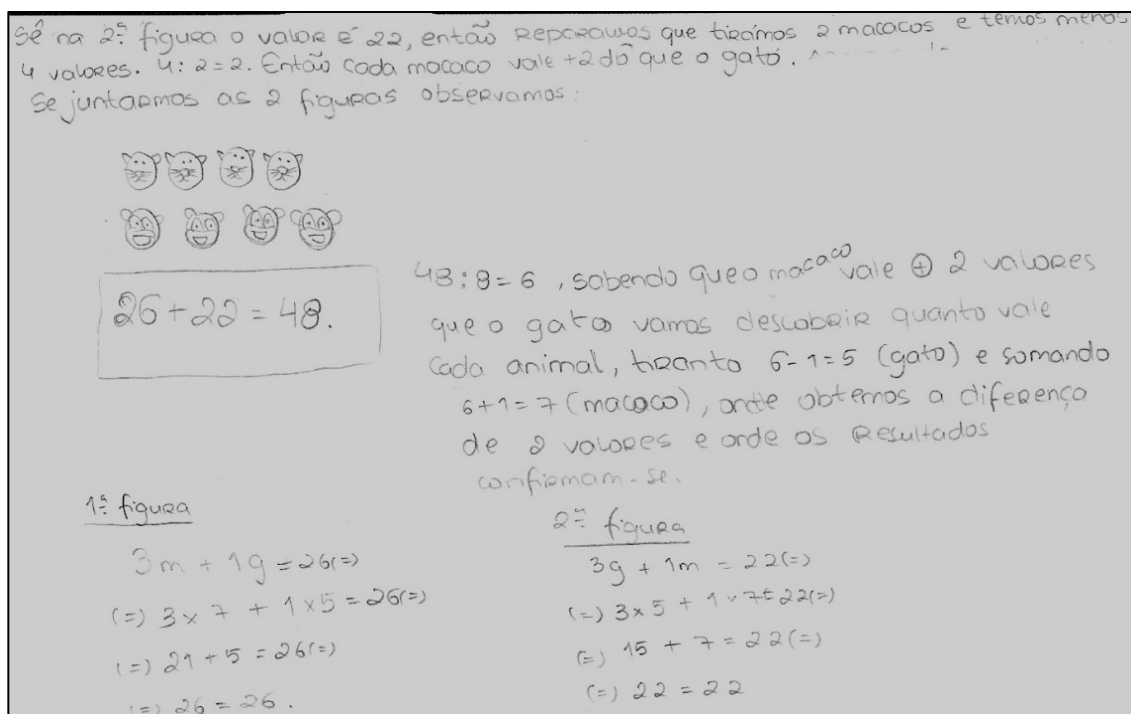 Sê na 2ª figura o valor é 22, então reparamos que tirámos 2 macacos e temos menos
4 valores. 4:2=2. Então cada macaco vale +2 do que o gato.
Se juntarmos as 2 figuras observamos:
26+22=48.
48:8=6, sabendo que o macaco vale ⊕ 2 valores
que o gato vamos descobrir quanto vale
cada animal, tiranto 6-1=5 (gato) e somando
6+1=7 (macaco), onde obtemos a diferença
de 2 valores e onde os resultados
confirmam-se.
1ª figura
3m + 1g = 26(=)
(=) 3×7 + 1×5 = 26(=)
(=) 21+5 = 26(=)
(=) 26 = 26.
2ª figura
3g + 1m = 22(=)
(=) 3×5 + 1×7=22(=)
(=) 15 + 7 = 22(=)
(=) 22 = 22